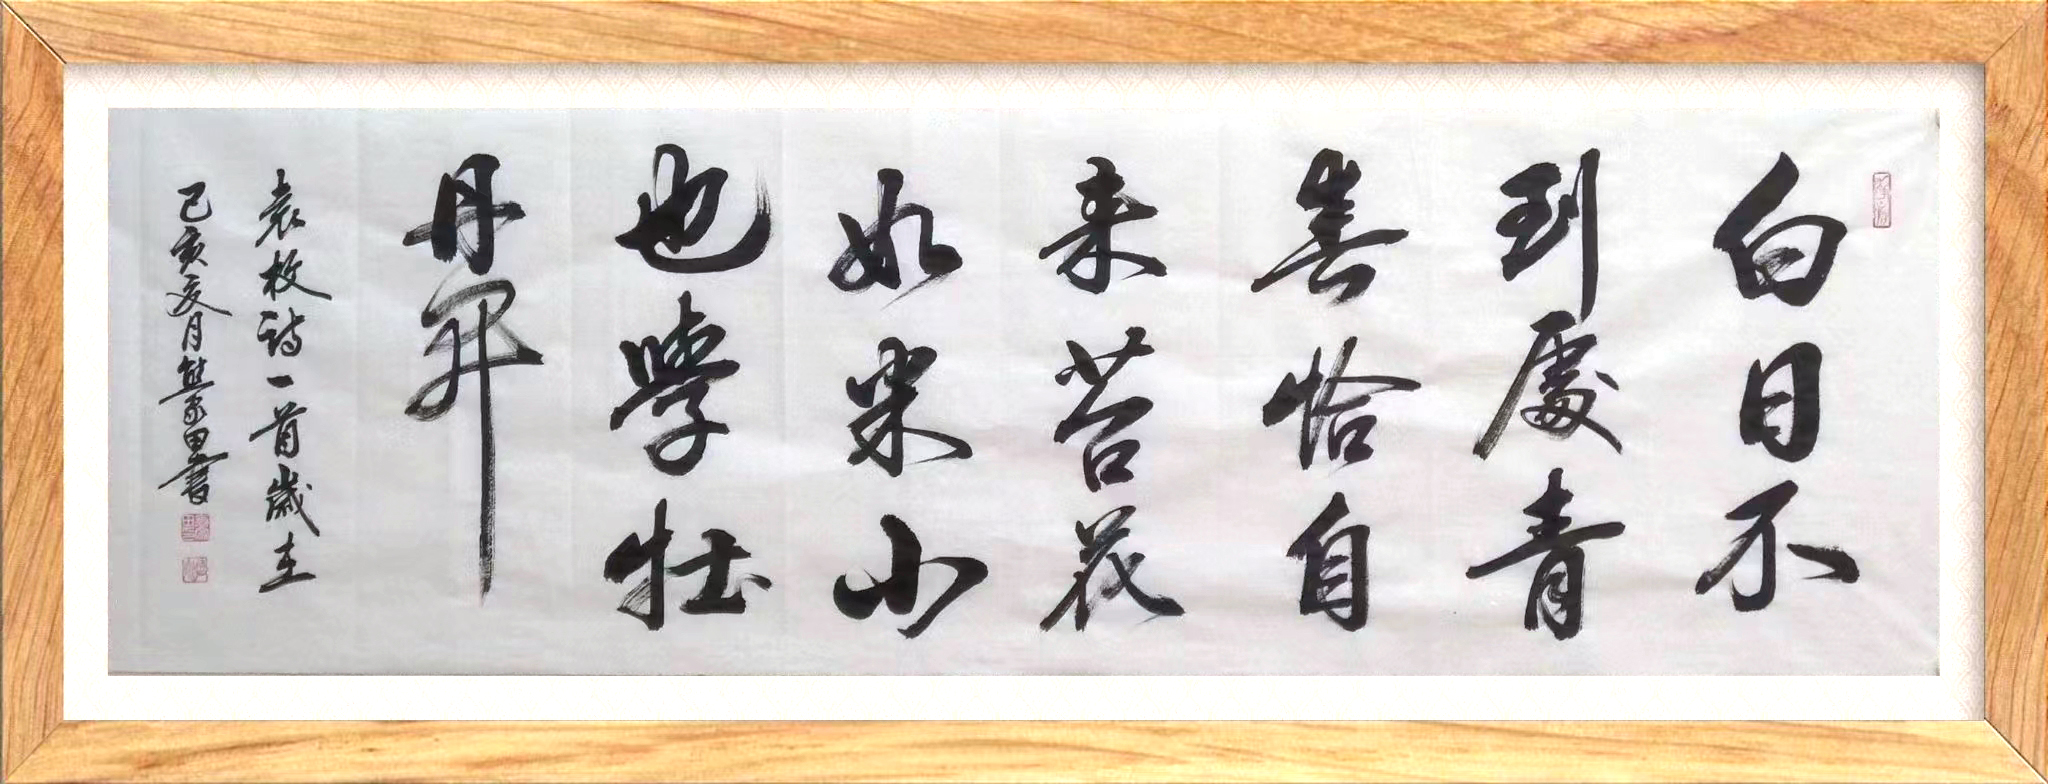 白日不
到處青
春恰自
来苔花
如米小
也學牡
丹開
袁枚詩一首歲在
己亥夏月熊家田書